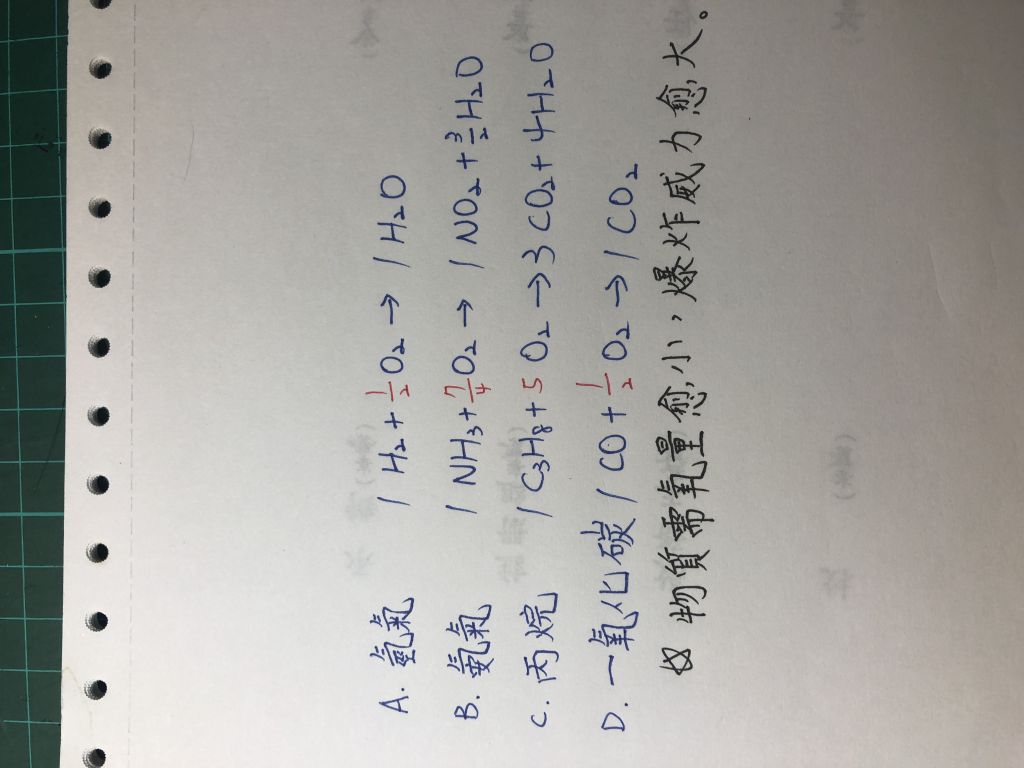 A. 氫氣 1 H₂ + 1/2 O₂ → 1 H₂O
B. 氨氣 1 NH₃ + 7/4 O₂ → 1 NO₂ + 3/2 H₂O
C. 丙烷 1 C₃H₈ + 5 O₂ → 3 CO₂ + 4H₂O
D. 一氧化碳 1 CO + 1/2 O₂ → 1 CO₂
物質需氧量愈小，爆炸威力愈大。